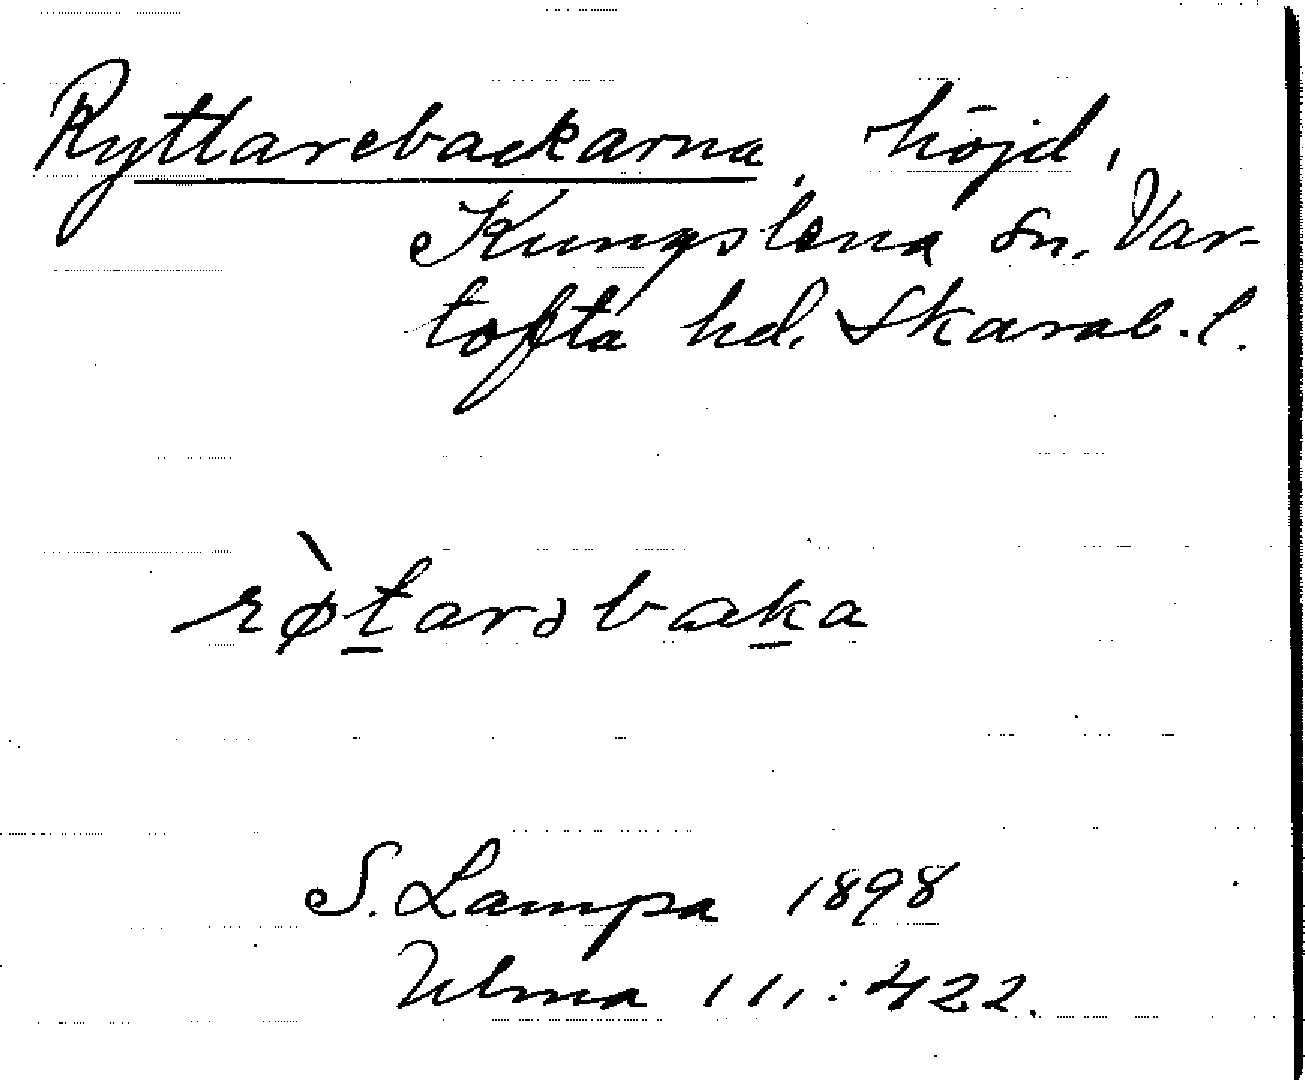 Ryttarebackarna, höjd,
Kungslena sn. Var-
tofta hd. Skarab. l.
rø̀tarəbaka
S. Lampa 1898
Ulma 111:422.